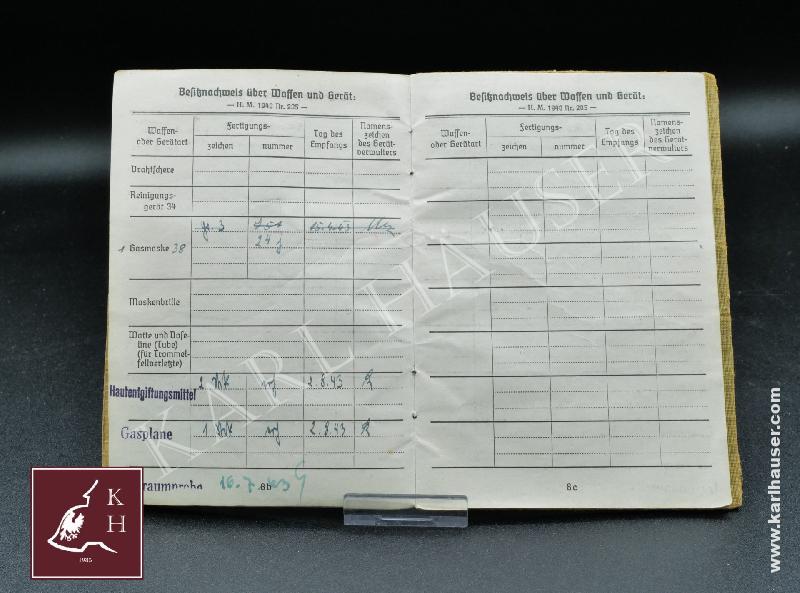 Besitznachweis über Waffen und Gerät:
— H. M. 1940 Nr. 205 —
Waffen- oder Gerätart
Fertigungs-
zeichen
nummer
Tag des Empfangs
Namens-zeichen des Gerät-verwalters
Drahtschere
Reinigungs-
gerät 34
1 Gasmaske 38
24
Maskenbrille
Watte und Vase-
line (Tube)
(für Trommel-
fellverletzte)
Hautentgiftungsmittel 2.8.43
Gasplane 1 2.8.43
raumprobe 16.7.43
8b
Besitznachweis über Waffen und Gerät:
— H. M. 1940 Nr. 205 —
Waffen- oder Gerätart
Fertigungs-
zeichen
nummer
Tag des Empfangs
Namens-zeichen des Gerät-verwalters
8c
KARL HAUSER
K
H
1983
www.karlhauser.com